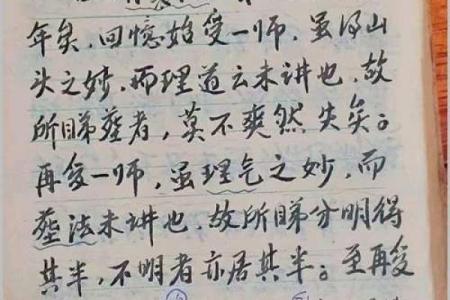 年矣，回憶始受一师，虽得山
头之妙，而理道云未讲也，故
所睇葬者，莫不爽然失矣。
再受一师，虽理气之妙，而
葬法未讲也，故所睇分明得
其半，不明者亦居其半。至再受